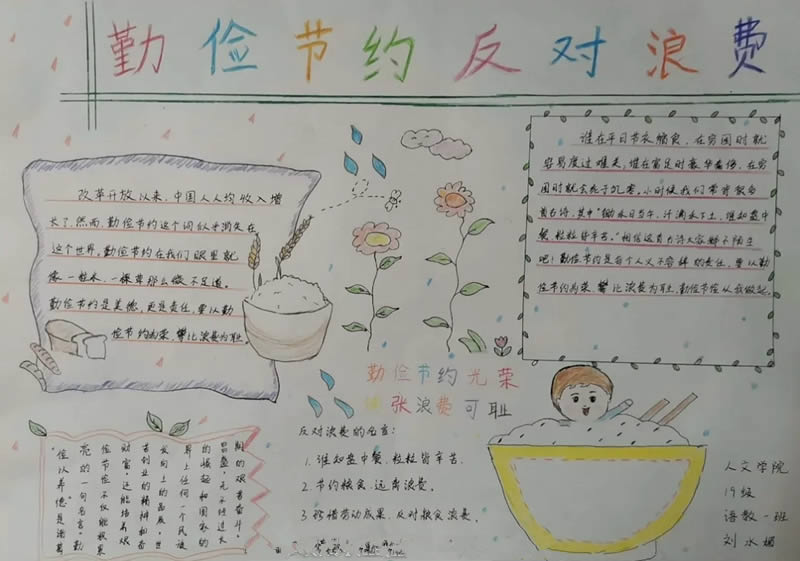 勤俭节约反对浪费
改革开放以来,中国人人均收入增
长了.然而,勤俭节约这个词似乎消失在
这个世界,勤俭节约在我们眼里就
像一粒米,一棵草那么微不足道。
勤俭节约是美德,更是责任,要以勤
俭节约为荣,攀比浪费为耻。
谁在平日节衣缩食,在穷困时就
容易度过难关;谁在富足时豪华奢侈,在穷
困时就会死于饥寒.小时候我们常背敏
首古诗,其中"锄禾日当午,汗滴禾下土,谁知盘中
餐,粒粒皆辛苦。"相信这首古诗大家都不陌生
吧!勤俭节约是每个人义不容辞的责任,要以勤
俭节约为荣,攀比浪费为耻,勤俭节俭从我做起。
勤俭节约光荣
张浪费可耻
反对浪费的名言:
1.谁知盘中餐,粒粒皆辛苦.
2.节约粮食,远离浪费。
3.珍惜劳动成果,反对粮食浪费。
"俭以养德"是诸葛
亮的一句名言"勤
俭节俭不仅能积累
财富,还能培养艰
苦创业的精神和奋
发向上的品质,世
界上任何一个民族
的崛起和国家的
昌盛,无不经过长
期的艰苦奋斗。
人文学院
19级
语教一班
刘水媚